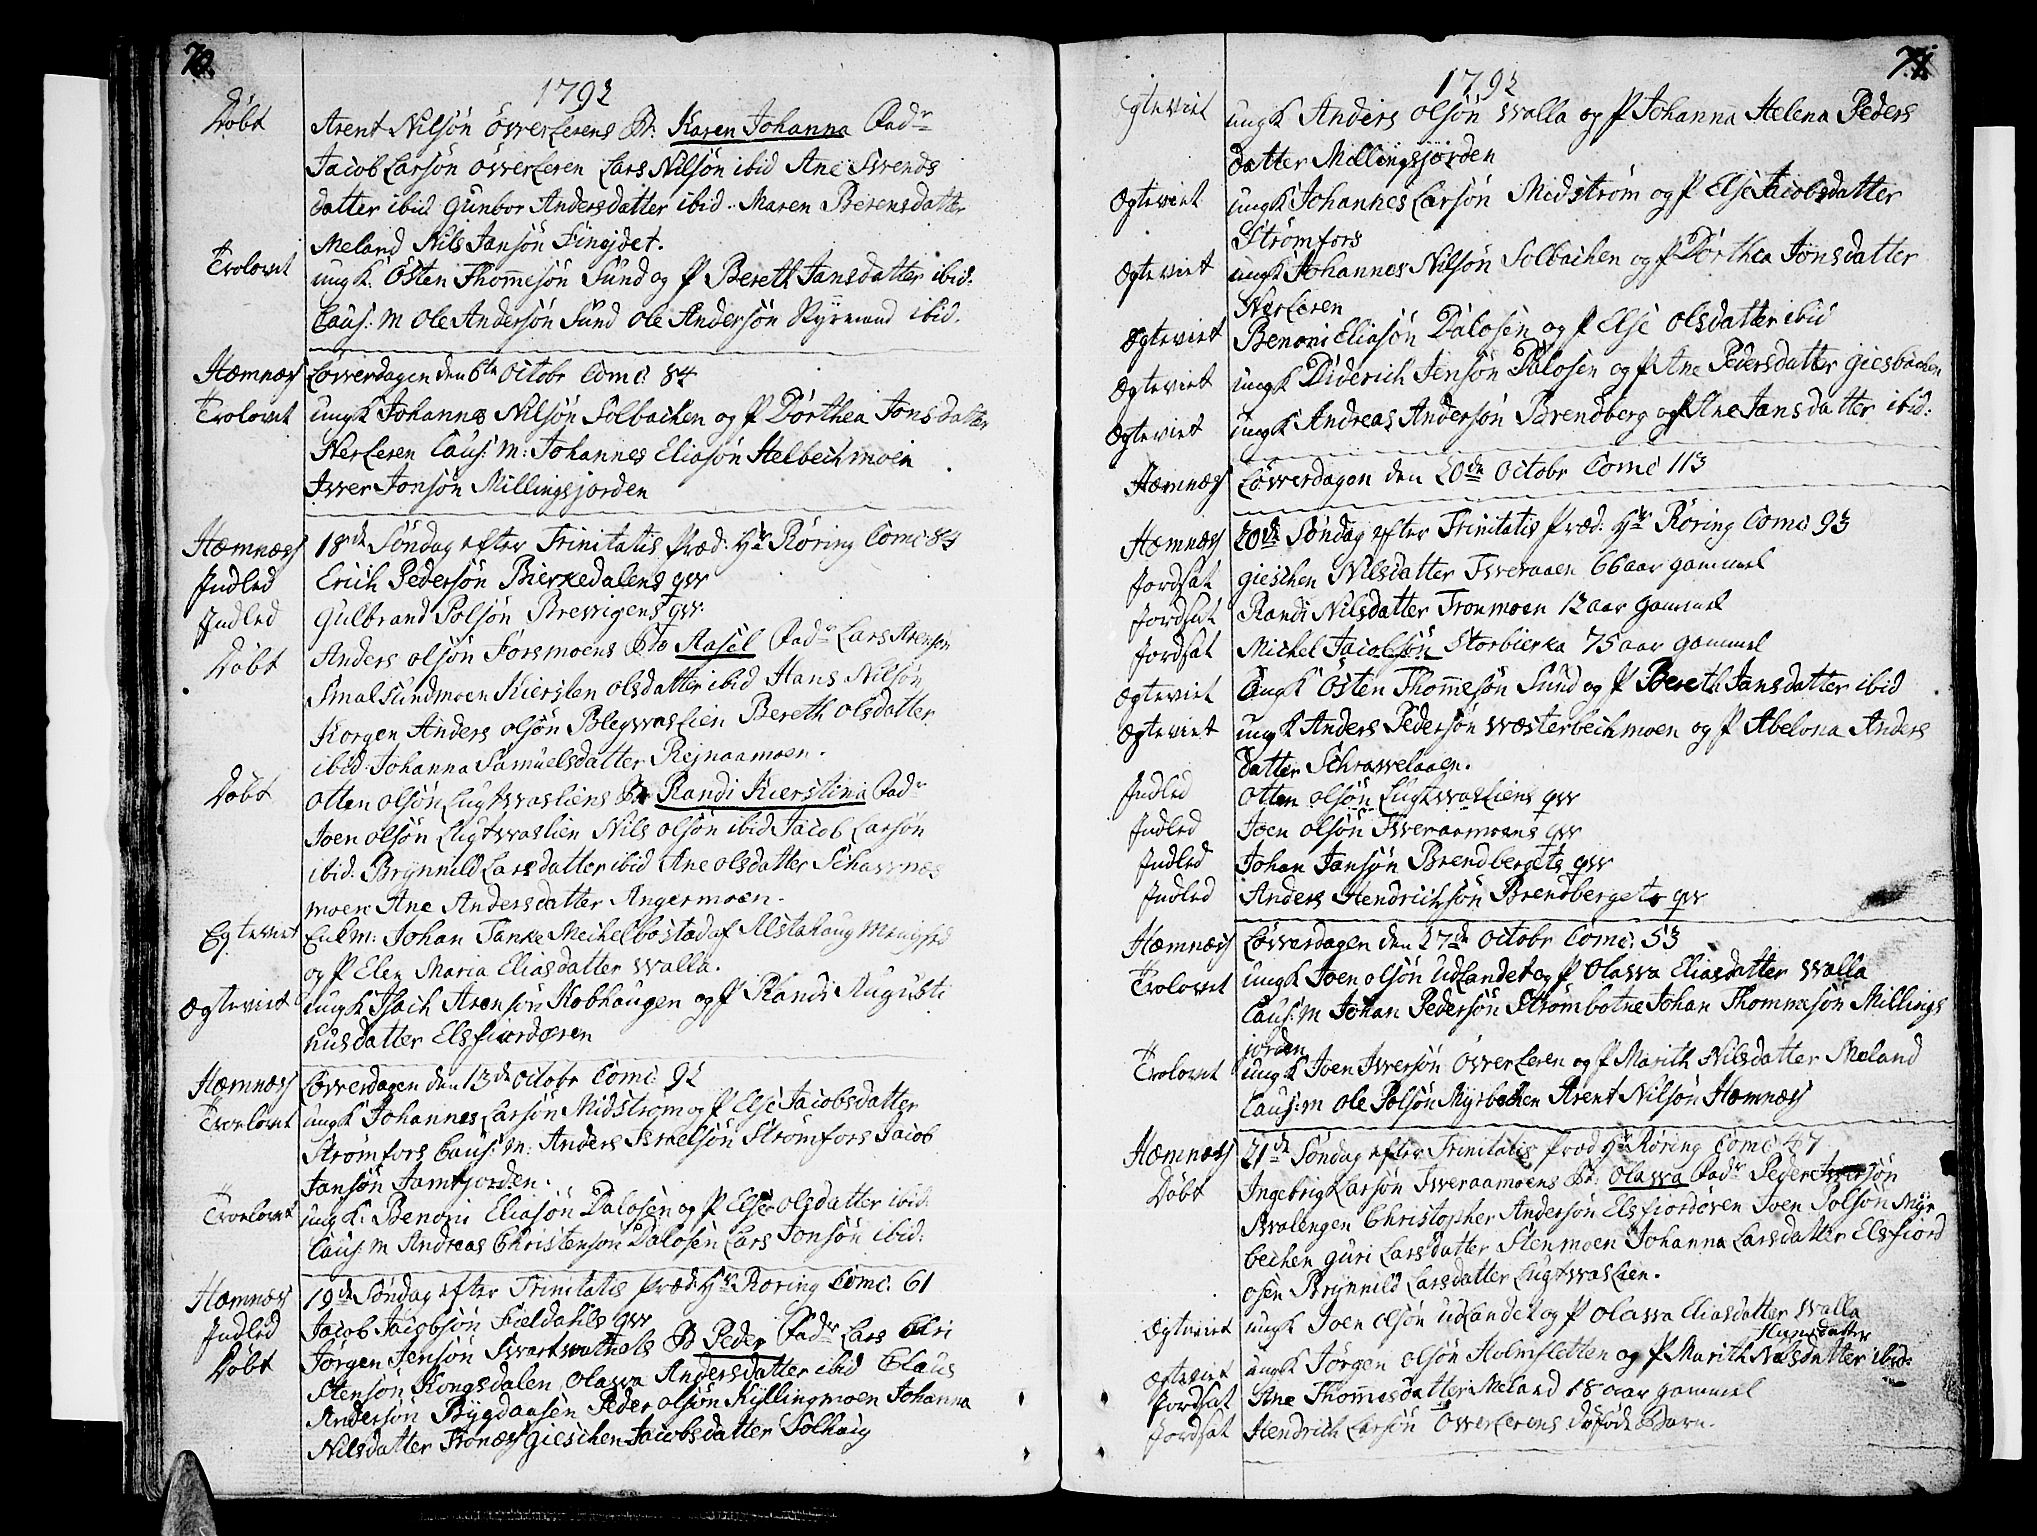 70.
1792
Döbt Arent Nilsön överlerens B: Karen Johanna Fadr
Jacob Larsön överleren Lars Nilsön ibid Ane Svends
datter ibid Gunbor Andersdatter ibid. Maren Berensdatter
Meland Nils Jansön Finejdet.
Trolovet ungk. Östen Thomesön Sund og P Bereth Jansdatter ibid:
Caus: M Ole Andersön Sund Ole Andersön Styrmand ibid.
Hæmnæs Löwerdagen den 6te Octobr Comc 84
Trolovet ungk Johannes Nilsön Solbachen og P Dorthea Jonsdatter
Nerleren Caus: M: Johannes Eliasön Helbechmoen
Iwer Jonsön Millingsjorden
Hæmnæs 18de Söndag efter Trinitatis Præd: Hr Röring Comc: 84
Indled Erich Pedersön Bierkedalens qvr
Indled Gulbrand Polsön Brevigens qvr.
Döbt Anders olsön Forsmoens B Aasel Fadr Lars Arensön
Smalsundmoen Kiersten olsdatter ibid Hans Nilsön
Korgen Anders olsön Blegvaslien Bereth olsdatter
ibid. Johanna Samuelsdatter Rejnaamoen.
Döbt Otten olsön Lugtvasliens B Randi Kierstina Fadr
Joen olsön Lugtvaslien Nils olsön ibid Jacob Larsön
ibid. Brynnild Larsdatter ibid Ane olsdatter Schavnæs
moen Ane Andersdatter Angermoen.
Egteviet Enkm: Johan Tanke Meichelbostad af Alstahaug Menighed
og P Elen Maria Eliasdatter Walla.
Ægteviet ungk Isach Arensön Kobhaugen og P Randi Augusti
nusdatter Elsfiordøren
Hæmnæs Löwerdagen den 13de Octobr Comc 92
Trolovet ungk Johannes Larsön Midström og P Else Jacobsdatter
Strömfors Caus: M: Anders Israelsön Strömfors Jacob
Jansön Jamtjorden.
Trolovet ungk: Benoni Eliasön Dalosen og P Else olsdatter ibid:
Caus: M Andreas Christensön Dalosen Lars Jonsön ibid:
Hæmnæs 19de Söndag efter Trinitatis Præd: Hr Röring Comc. 61
Indled Jacob Jacobsön Fieldahls qvr
Döbt Jörgen Jensön Svartvathels B Peder Fadr Lars
Stensön Kongsdalen Olava Andersdatter ibid Claus
Andersön Bygdaasen Peder olsön Kyllingmoen Johanna
Nilsdatter Fronæs Gieschen Jacobsdatter Solhaug
71.
1792
Egteviet ungk Anders olsön Walla og P Johanna Helena Peders
datter Millingsjorden
Ægteviet ungk Johannes Larsön Midström og P Else Jacobsdatter
Strömfors
Ægteviet ungk Johannes Nilsön Solbachen og P Dorthea Jonsdatter
Nerleren
Ægteviet Benoni Eliasön Dalosen og P Else olsdatter ibid
Ægteviet ungk Diderich Jensön Dalosen og P Ane Pedersdatter Giesbachen
Ægteviet ungk Andreas Andersön Brendberg og P Ane Jansdatter ibid:
Hæmnæs Löwerdagen den 20de Octobr Comc 113
Hæmnæs 20de Söndag efter Trinitatis Præd: Hr Röring Comc 93
Jordsat Gieschen Nilsdatter Tveraaen 66 aar gammel
Jordsat Randi Nilsdatter Tronmoen 12 aar gammel
Jordsat Michel Jacobsön Storbierka 75 aar gammel
Ægteviet Ungk Östen Thomesön Sund og P Bereth Jansdatter ibid
Ægteviet ungk Anders Pedersön Wæsterbeckmoen og P Abelona Anders
datter Schravelaaen.
Indled Otten olsön Lugtvasliens qvr
Indled Joen olsön Tveraamoens qvr
Indled Johan Jansön Brendbergets qvr
Indled Anders Hendrichsön Brendbergets qvr
Hæmnæs Löwerdagen den 27de Octobr Comc. 53
Trolovet ungk Joen olsön Udlandet og P Olava Eliasdatter Walla
Caus: M Johan Pedersön Strömbotne Johan Thommesön Millings
jorden
Trolovet ungk Joen Iversön Överleren og P Marith Nilsdatter Meland
Caus: M Ole Polsön Myrbechen Arent Nilsön Hæmnæs
Hæmnæs 21de Söndag efter Trinitatis Præd Hr Röring Comc. 47
Döbt Ingebrigt Larsön Tveraamoens B: Olava Fadr Peder Iversön
Svalengen Christopher Andersön Elsfiordøren Joen Polsön Myr
bechen Guri Larsdatter Stenmoen Johanna Larsdatter Elsfiord
osen Brynnild Larsdatter Lugtvaslien.
Ægteviet ungk Joen olsön Udlandet og P Olava Eliasdatter Walla
Hansdatter
Ægteviet ungk Jörgen olsön Holmsletten og P Marith Nilsdatter ibid:
Jordsat Ane Thomesdatter Meland 18 aar gammel
Jordsat Hendrich Larsön Överlerens döföd Barn.